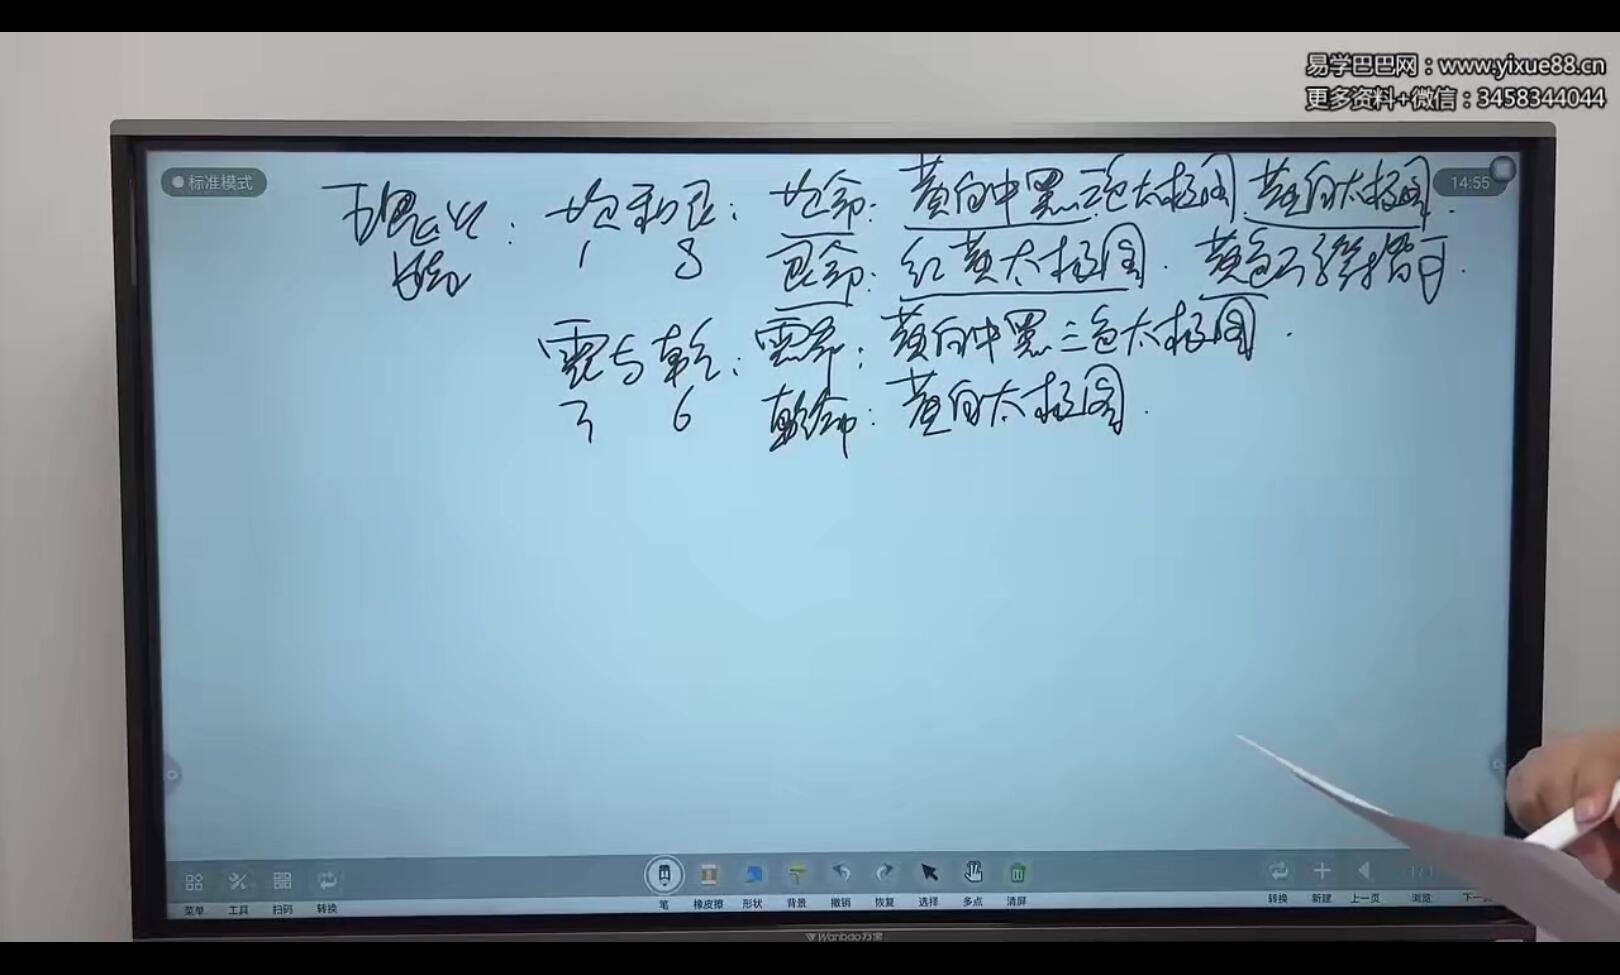 易学巴巴网：www.yixue88.cn
更多资料+微信：3458344044
标准模式
14:55
坎和艮：坎命：黄白中黑三色太极图．黄白太极图．
1 8 艮命：红黄太极图．黄色
震与乾：震命：黄白中黑三色太极图．
3 6 乾命：黄白太极图．
菜单 工具 扫码 转换 笔 橡皮擦 形状 背景 撤销 恢复 选择 多点 清屏 转换 新建 上一页 浏览 下一
Wanbao万宝